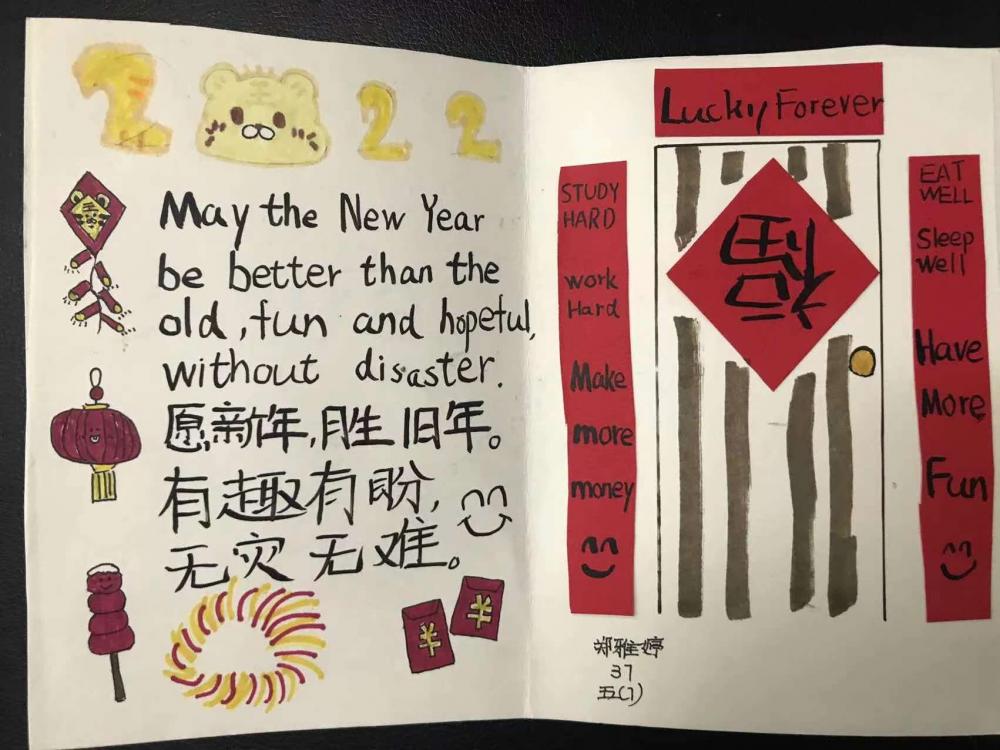 2 2 2
May the New Year
be better than the
old, fun and hopeful,
without disaster.
愿新年，胜旧年。
有趣有盼，
无灾无难。
Lucky Forever
STUDY
HARD
work
Hard
Make
more
money
福
EAT
WELL
Sleep
well
Have
More
Fun
郑雅婷
37
五(7)